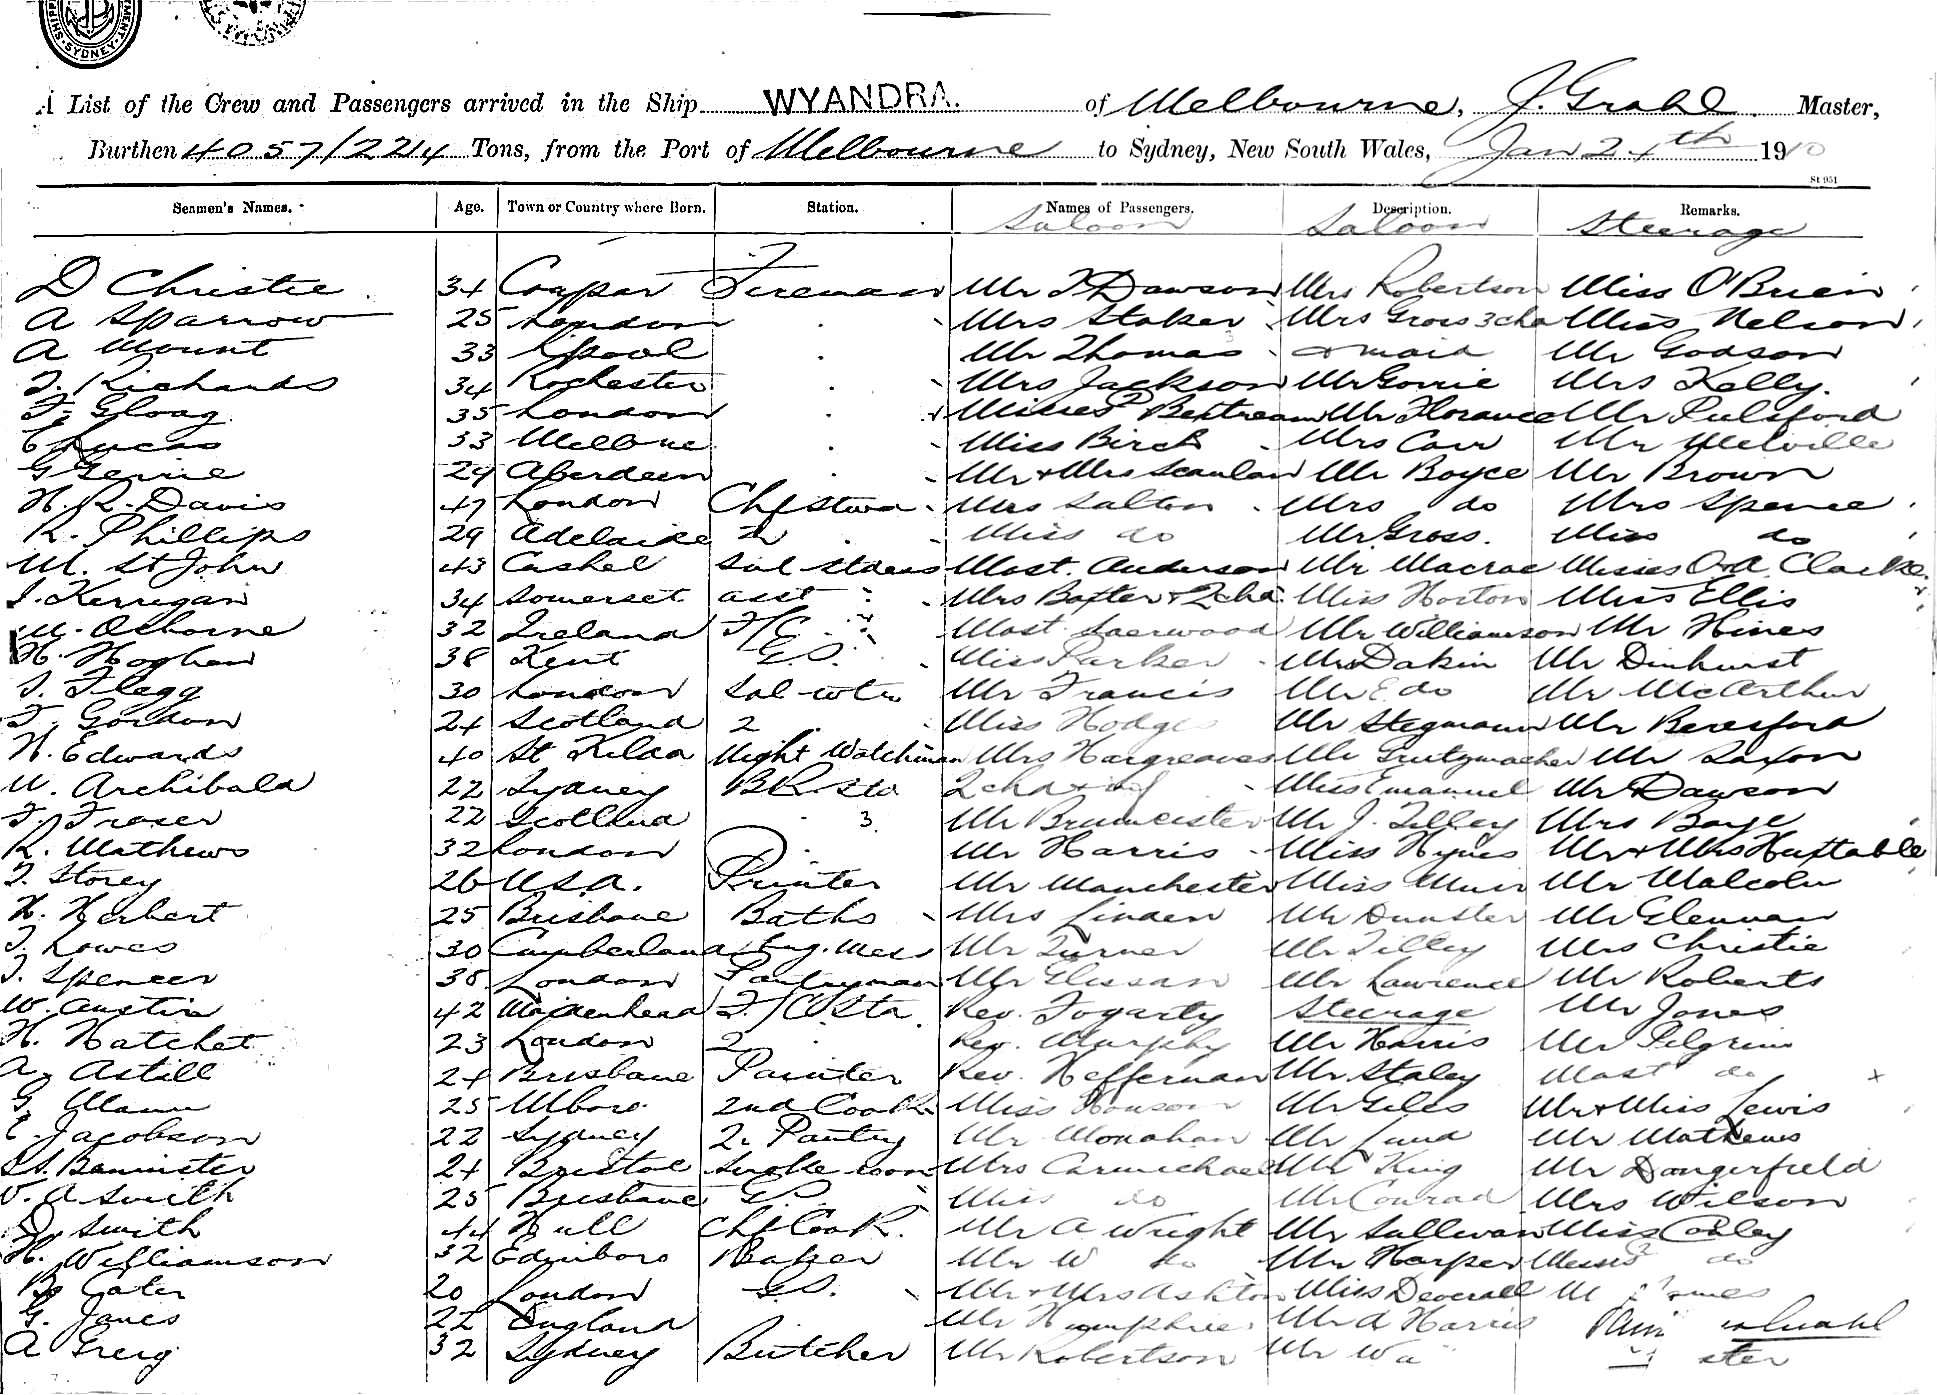 SYDNEY
A List of the Crew and Passengers arrived in the Ship WYANDRA. of Melbourne, J. Grahl. Master,
Burthen 4057/2214 Tons, from the Port of Melbourne to Sydney, New South Wales, Jan 24th 1910
St 951
Seamen's Names. Age. Town or Country where Born. Station. Names of Passengers. Description. Remarks.
Saloon Saloon Steerage
D Christie 34 Fireman Mr T Dawson Mrs Robertson Miss O'Brien
A Sparrow 25 London Mrs Stoker Mrs Gross 3 chd Miss Nelson
A Mount 33 L'pool Mr Thomas & maid Mr Godson
T. Richards 34 Rochester Mrs Jackson Mr Gorrie Mrs Kelly.
F. Gloag 35 London Misses 2 Bertream Mr Florance Mr Pulsford
E Lucas 33 Melbne Miss Birch Mrs Carr Mr Melville
G 29 Aberdeen Mr & Mrs Scanlan Mr Boyce Mr Brown
H. R. Davis 47 London Chf Stwd Mrs Salton Mrs do Mrs Spence
R. Phillips 29 Adelaide 2 Miss do Mr Gross. Miss do
M. St John 43 Cashel Sal Stdess Mast. Anderson Mr Macrae Misses O & A Clarke
J. Kerrigan 34 Somerset asst Mrs Baxter & 2 chd Miss Horton Miss Ellis
M. Osborne 32 Ireland F/C Mast. Mr Williamson Mr Hines
H. Hoghen 38 Kent G.S. Miss Parker Mrs Dakin Mr Dinhurst
T. Flegg 30 London Sal wtr Mr Francis Mr E do Mr McArthur
T. Gordon 24 Scotland 2 Miss Hodge Mr Stegmann Mr Beresford
H. Edwards 40 St Kilda Night Watchman Mrs Hargreaves Mr Grutzmacher Mr Saxon
W. Archibald 22 Sydney BR Std 2 chd & inf Miss Emanuel Mr Dawson
F. Fraser 22 Scotland 3 Mr Brumeister Mr J. Tilley Mrs Boyce
R. Mathews 32 London Mr Harris Miss Hynes Mr & Mrs Huxtable
T. Storey 26 U.S.A. Printer Mr Manchester Miss Muir Mr Malcolm
H. Herbert 25 Brisbane Baths Mrs Linden Mr Dunster Mr Glennan
T. Lowes 30 Cumberland Eng. Mess Mr Turner Mr Tilley Mrs Christie
T. Spencer 38 London Pantryman Mr Glissan Mr Lawrence Mr Roberts
W. Austin 42 Maidenhead F/C Std. Rev. Fogarty Steerage Mr Jones
H. Hatchet 23 London 2 Rev. Murphy Mr Harris Mr Pilgrim
A. Astill 24 Brisbane Painter Rev. Heffernan Mr Staley Mast do
G. Mann 25 Mboro 2nd Cook Miss Mr Giles Mr & Miss Lewis
E. Jacobson 22 Sydney 2. Pantry Mr Monahan Mr Lund Mr Mathews
Bannister 24 Bristol Smoke room Mrs Carmichael Mr King Mr Dangerfield
V. A Smith 25 Brisbane G.S. Miss do Mr Conrad Mrs Wilson
Smith 44 Hull Chf Cook. Mr A Wright Mr Sullivan Miss Conley
H. Williamson 32 Edinboro Baker Mr W do Mr Harper Misses 2 do
B. Cater 20 London G.S. Mr & Mrs Ashton Miss Deverall M
G. Janes 22 England Mr Humphries Mr A Harris
A Greig 32 Sydney Butcher Mr Robertson Mr